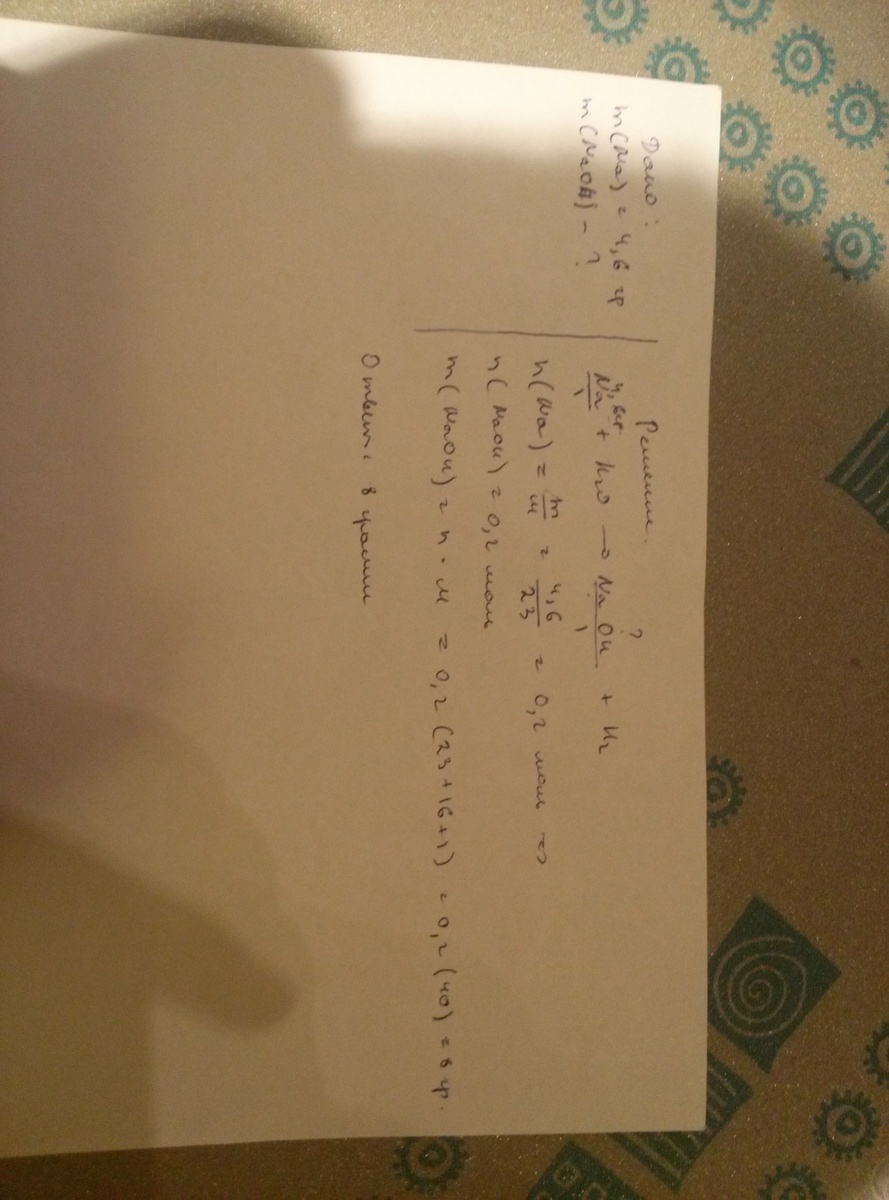 Дано:
m(Na) = 4,6 гр
m(NaOH) - ?
Решение.
4,6гр ?
Na + H2O → NaOH + H2
1 1
n(Na) = m/M = 4,6/23 = 0,2 моль ⇒
n(NaOH) = 0,2 моль
m(NaOH) = n · M = 0,2 (23+16+1) = 0,2 (40) = 8 гр.
Ответ: 8 грамм